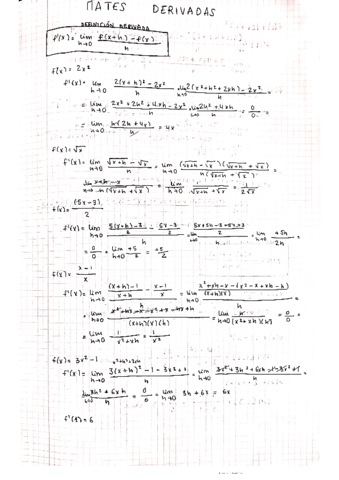 MATES DERIVADAS
DEFINICIÓN DERIVADA
f'(x) = lim h→0 f(x+h) - f(x) / h
f(x) = 2x²
f'(x) = lim h→0 2(x+h)² - 2x² / h = lim h→0 2(x²+h²+2xh) - 2x² / h =
= lim h→0 2x² + 2h² + 4xh - 2x² / h = lim h→0 2h² + 4xh / h = 0/0 =
= lim h→0 h(2h + 4x) / h = 4x
f(x) = √x
f'(x) = lim h→0 √x+h - √x / h = lim h→0 (√x+h - √x)(√x+h + √x) / h(√x+h + √x) =
lim h→0 x+h-x / h(√x+h + √x) = lim h→0 1 / √x+h + √x = 1 / 2√x
f(x) = (5x-3) / 2
= 0/0 = lim h→0 +5/2 = +5/2
f(x) = x-1 / x
f'(x) = lim h→0 (x+h)-1 / x+h - x-1 / x / h = lim h→0 x²+xh-x-(x²-x+xh-h) / (x+h)(x) / h =
= lim h→0 1 / x²+xh = 1 / x²
f(x) = 3x² - 1
x²+h²+2xh
f'(x) = lim h→0 3(x+h)² - 1 - 3x² + 1 / h = lim h→0 3x² + 3h² + 6xh - 1 - 3x² + 1 / h =
lim h→0 3h² + 6xh / h = 0/0 = lim h→0 3h + 6x = 6x
f'(1) = 6